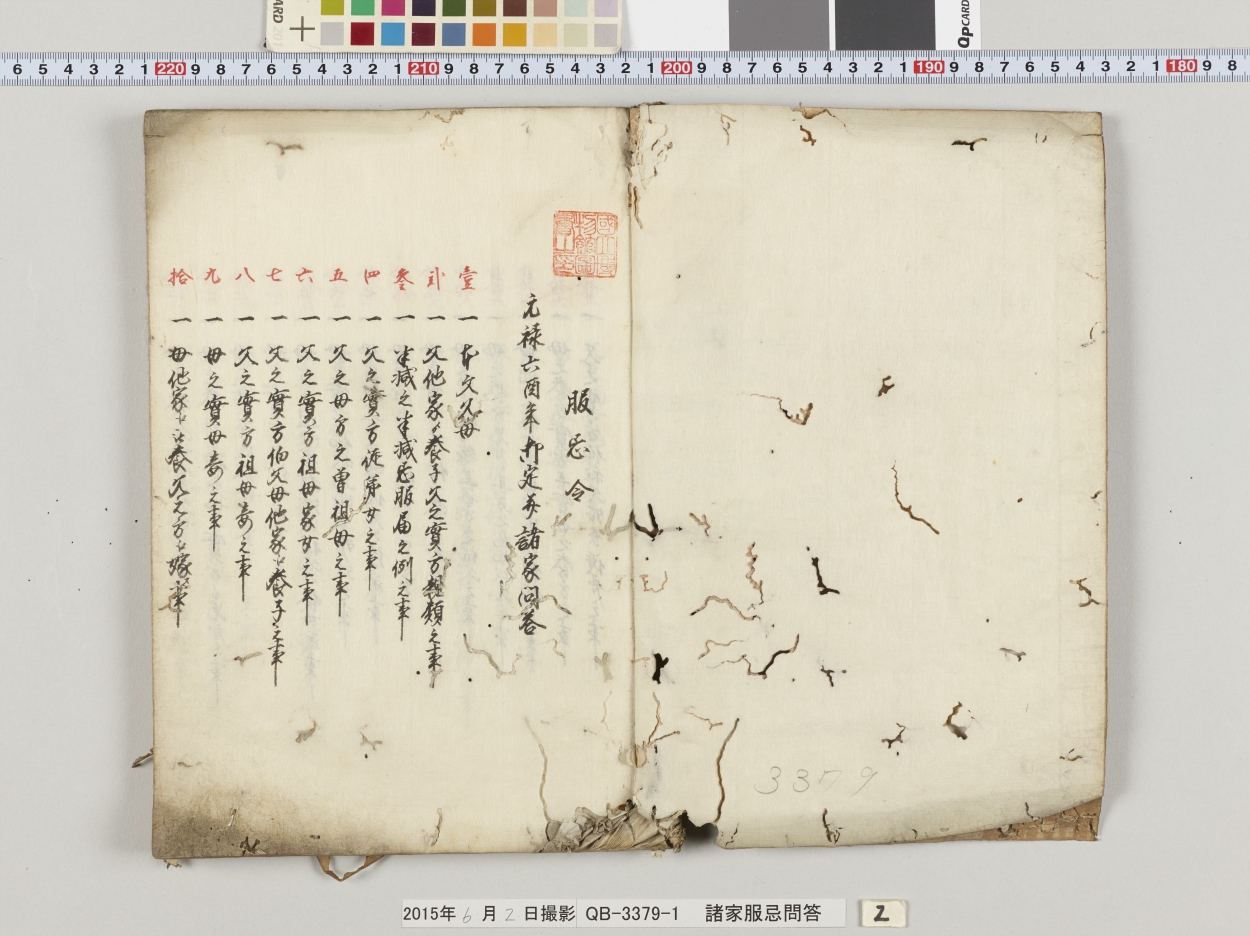 服忌令
元禄六酉年御定并諸家問答
壹 一 本文父母
弐 一 父他家ゟ養子父之實方親類之事
叄 一 半減之半減忌服届之例之事
四 一 父之實方従弟女之事
五 一 父之母方之曽祖母之事
六 一 父之實方祖母家女之事
七 一 父之實方伯父母他家ゟ養子之事
八 一 父之實方祖母妾之事
九 一 母之實母妾之事
拾 一 母他家ゟ養父之方ゟ嫁事
3379
2015年6月2日撮影 QB-3379-1 諸家服忌問答
2
6 5 4 3 2 1 220 9 8 7 6 5 4 3 2 1 210 9 8 7 6 5 4 3 2 1 200 9 8 7 6 5 4 3 2 1 190 9 8 7 6 5 4 3 2 1 180 9 8
QPCARD